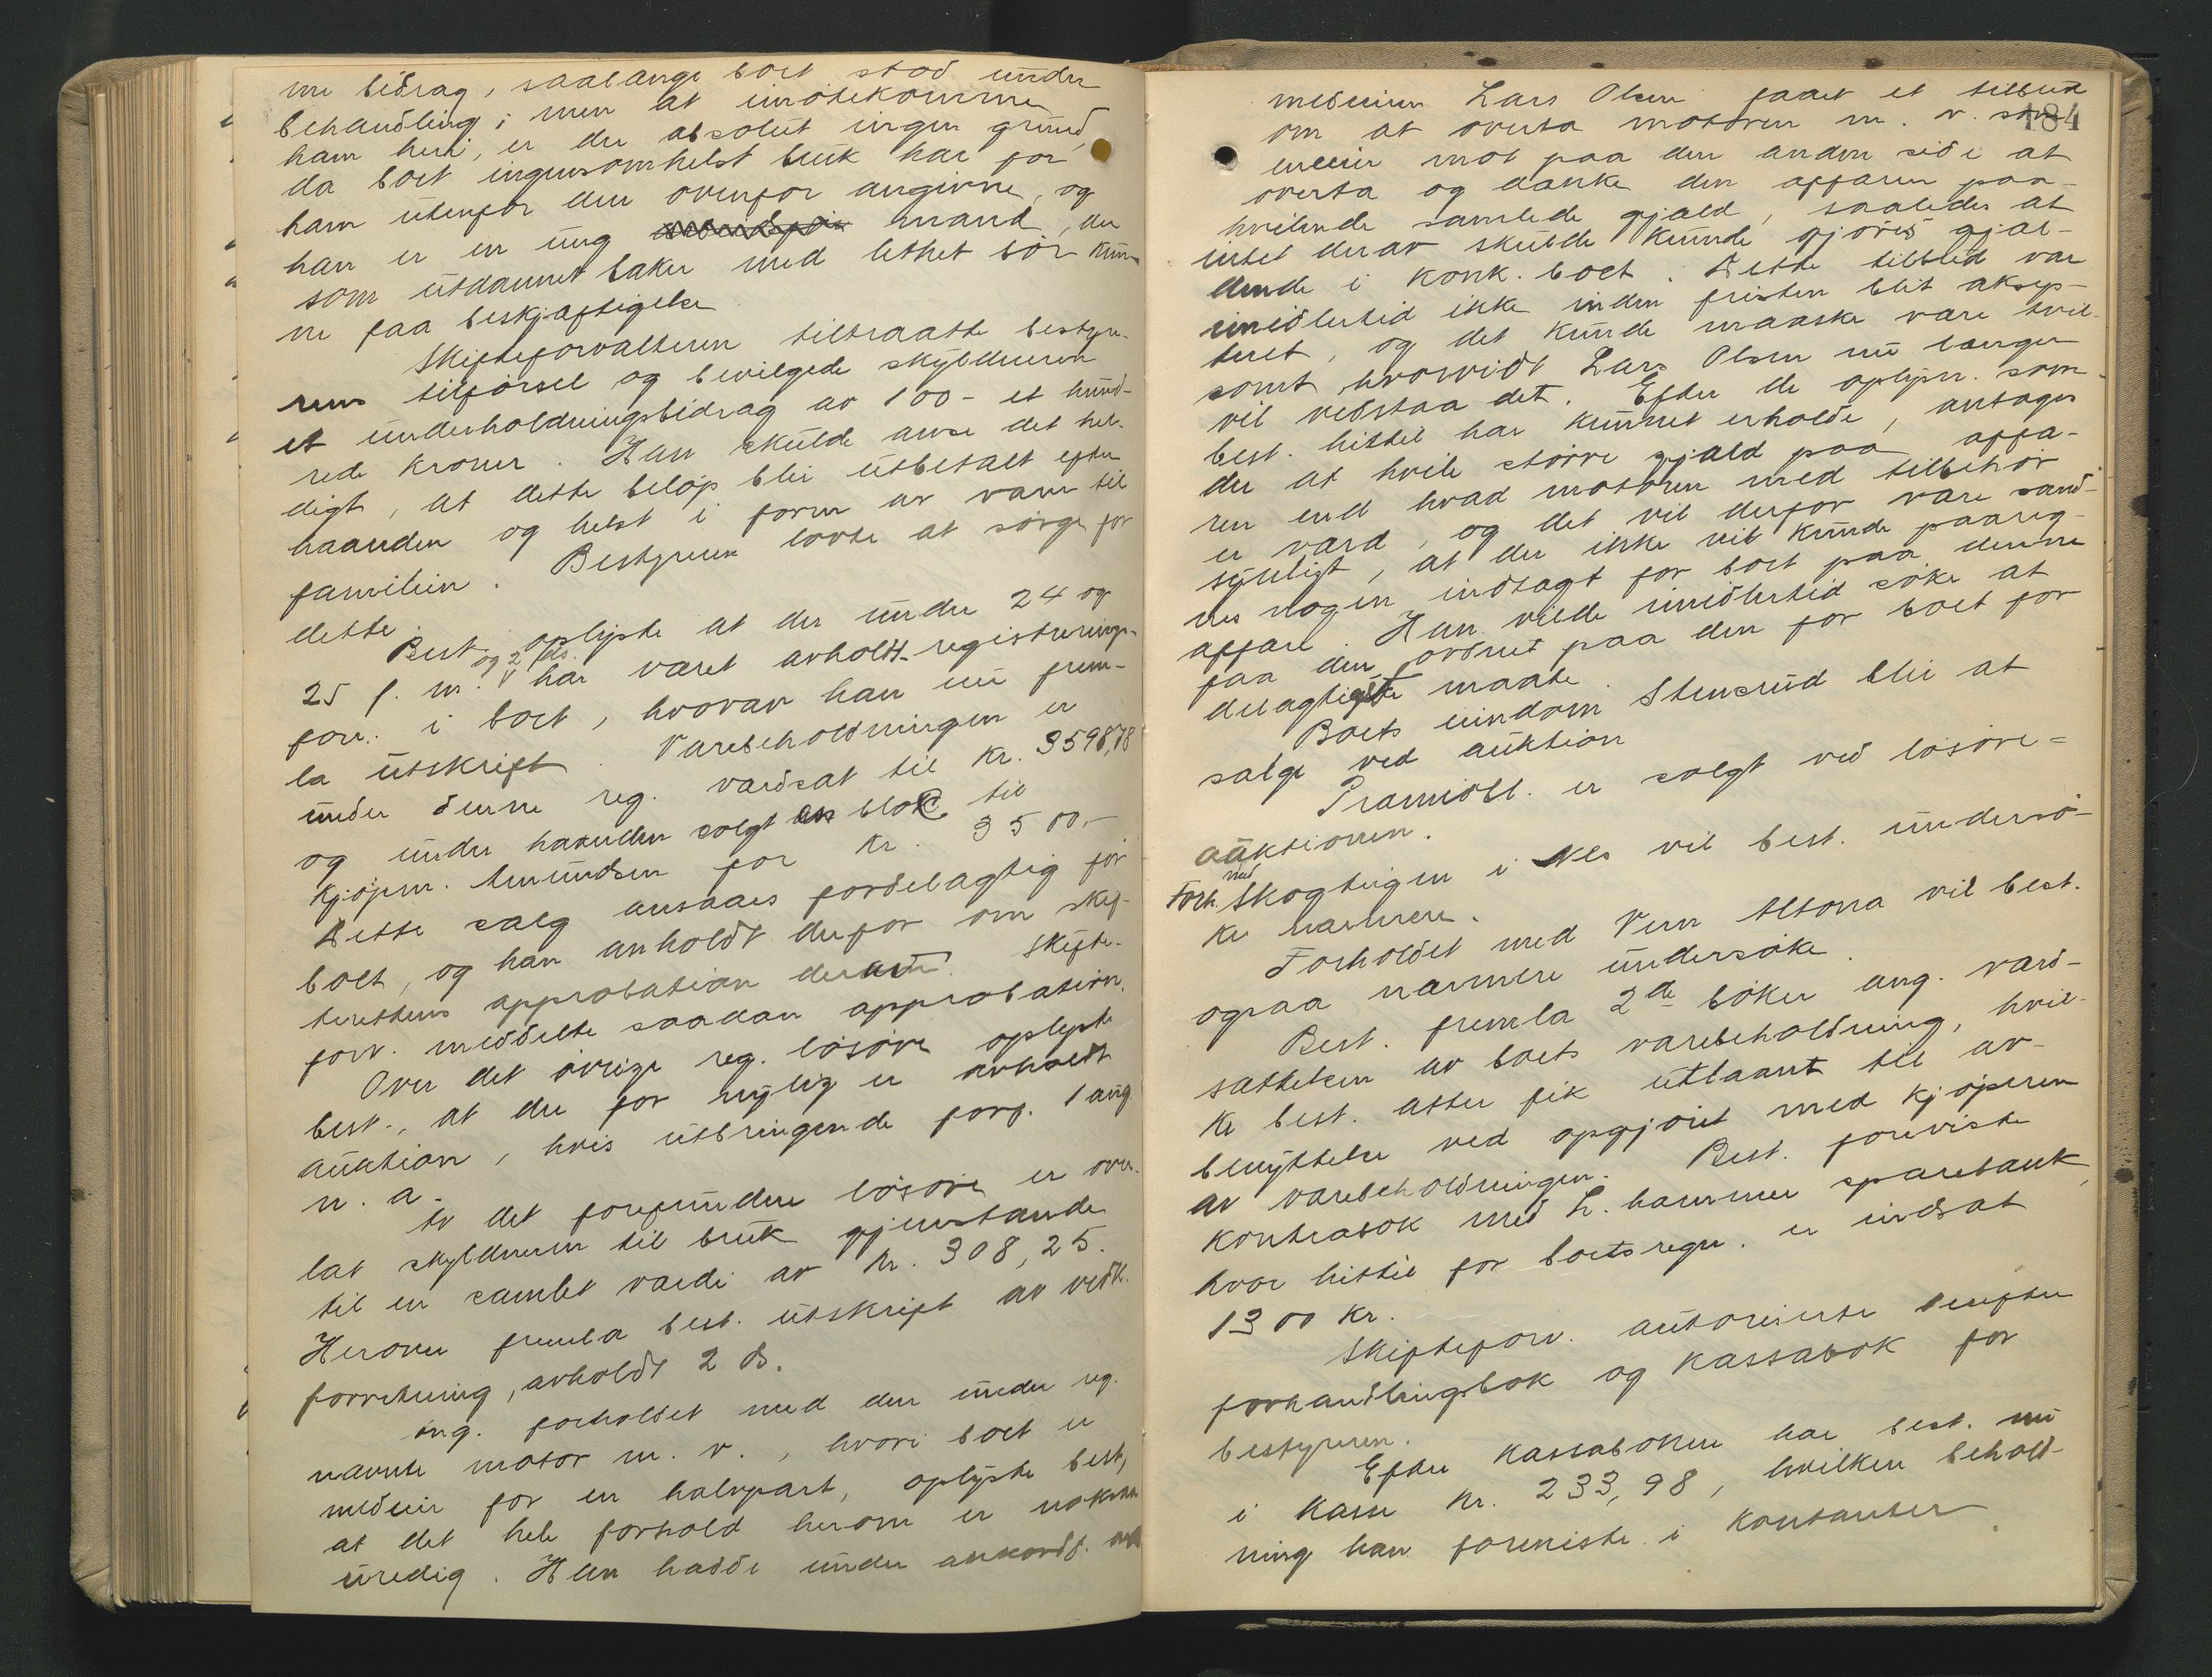 me bidrag, saalange boet stod under
behandling; men at imøtekomme
ham heri, er der absolut ingen grund,
da boet ingensomhelst bruk har for
ham utenfor den ovenfor angivne, og
han er en ung mand, der
som utdannet baker med lethet bør kun-
ne faa beskjæftigelse
Skifteforvalteren tiltraatte bestyre-
rens tilførsel og bevilgede skyldneren
et underholdningsbidrag av 100- et hund-
rede kroner. Han skulde anse det hel-
digt, at dette beløp blir utbetalt efter
haanden og helst i form av varer til
familien. Bestyreren lovte at sørge for
dette.
Best. oplyste at der under 24 og
25 f. m. og 2 ds. har været avholdt registrerings-
forr. i boet, hvorav han nu frem-
la utskrift. Varebeholdningen er
under denne reg. værdsat til kr. 3598,78
og under haanden solgt en bloc til
kjøpm. Amundsen for kr. 3500,-
Dette salg ansaaes fordelagtig for
boet, og han anholdt derfor om skif-
terettens approbation derav. Skifte-
forv. meddelte saadan approbation.
Over det øvrige reg. løsøre oplyste
best., at der for nylig er avholdt
auktion, hvis utbringende forf. 1 aug.
n. a.
Av det forefundne løsøre er over-
lat skyldneren til bruk gjenstande
til en samlet værdi av kr. 308,25.
Herover fremla best. utskrift av vedk.
forretning, avholdt 2 ds.
Ang. forholdet med den under reg.
nævnte motor m. v., hvori boet er
medeier for en halvpart, oplyste best,
at det hele forhold herom er noksaa
uredig. Han hadde under akkordf.
medeieren Lars Olsen faaet et tilbud
184
om at overta motoren m. v. som
eneeier mot paa den anden side at
overta og dække den affæren paa-
hvilende samlede gjæld, saaledes at
intet derav skulde kunde gjøres gjæl-
dende i konk. boet. Dette tilbud var
imidlertid ikke inden fristen blit aksep-
teret, og det kunde maaske være tvil-
somt, hvorvidt Lars Olsen nu længer
vil vedstaa det. Efter de oplysn. som
best. hittil har kunnet erholde, antages
der at hvile større gjæld paa affæ-
ren end hvad motoren med tilbehør
er værd, og det vil derfor være sand-
synligt, at der ikke vil kunde paareg-
nes nogen indtægt for boet paa denne
affære. Han vilde imidlertid søke at
faa den ordnet paa den for boet for
delagtigste maate.
Boets eiendom Stensrud blir at
salge ved auktion
Præmiobl. er solgt ved løsøre=
auktionen.
Forh. med Skogteigen i Nes vil best. undersø-
ke nærmere.
Forholdet med Vern Altona vil best.
ogsaa nærmere undersøke.
Best. fremla 2de bøker ang. værd-
sættelsen av boets varebeholdning, hvil-
ke best. atter fik utlaant til av-
benyttelse ved opgjøret med kjøperen
av varebeholdningen. Best. foreviste
kontrabok med L.hammer sparebank,
hvor hittil for boets regn. er indsat
1300 kr.
Skifteforv. autoriserte derefter
forhandlingsbok og kassabok for
bestyreren.
Efter kassaboken har best. nu
i kasse kr. 233,98, hvilken behold-
ning han foreviste i kontanter.